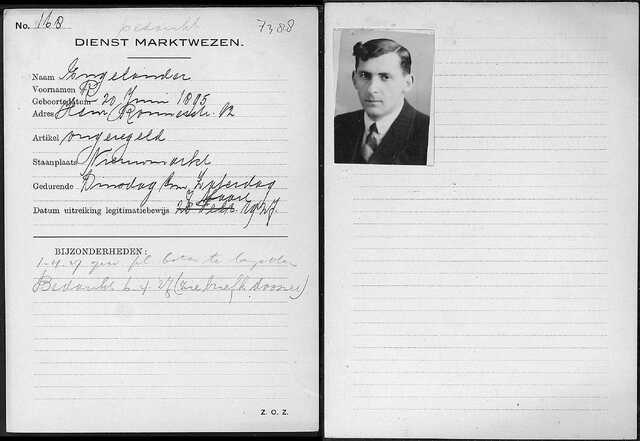 No. 168 bedankt 7388
DIENST MARKTWEZEN.
Naam Engelander
Voornamen B
Geboortedatum 20 Juni 1895
Adres
Artikel ongeregeld
Staanplaats Nieuwmarkt
Gedurende Dinsdag t/m Zaterdag
Datum uitreiking legitimatiebewijs 28 Febr. 1927.
BIJZONDERHEDEN:
1-4-27 gew. pl.
Bedankt 6-4-27 (zie brief h. Doorner)
Z. O. Z.